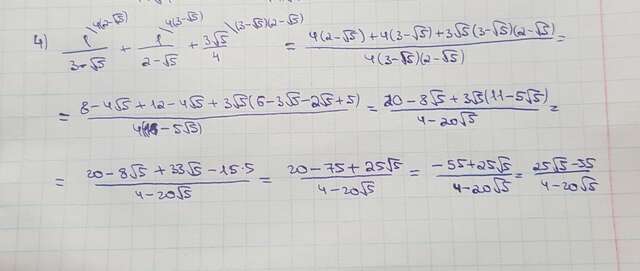 4) 1\4(2-√5) / 3-√5 + 1\4(3-√5) / 2-√5 + 3√5\(3-√5)(2-√5) / 4 = 4(2-√5)+4(3-√5)+3√5(3-√5)(2-√5) / 4(3-√5)(2-√5) =
= 8-4√5+12-4√5+3√5(6-3√5-2√5+5) / 4(-5√5) = 20-8√5+3√5(11-5√5) / 4-20√5 =
= 20-8√5+33√5-15·5 / 4-20√5 = 20-75+25√5 / 4-20√5 = -55+25√5 / 4-20√5 = 25√5-35 / 4-20√5